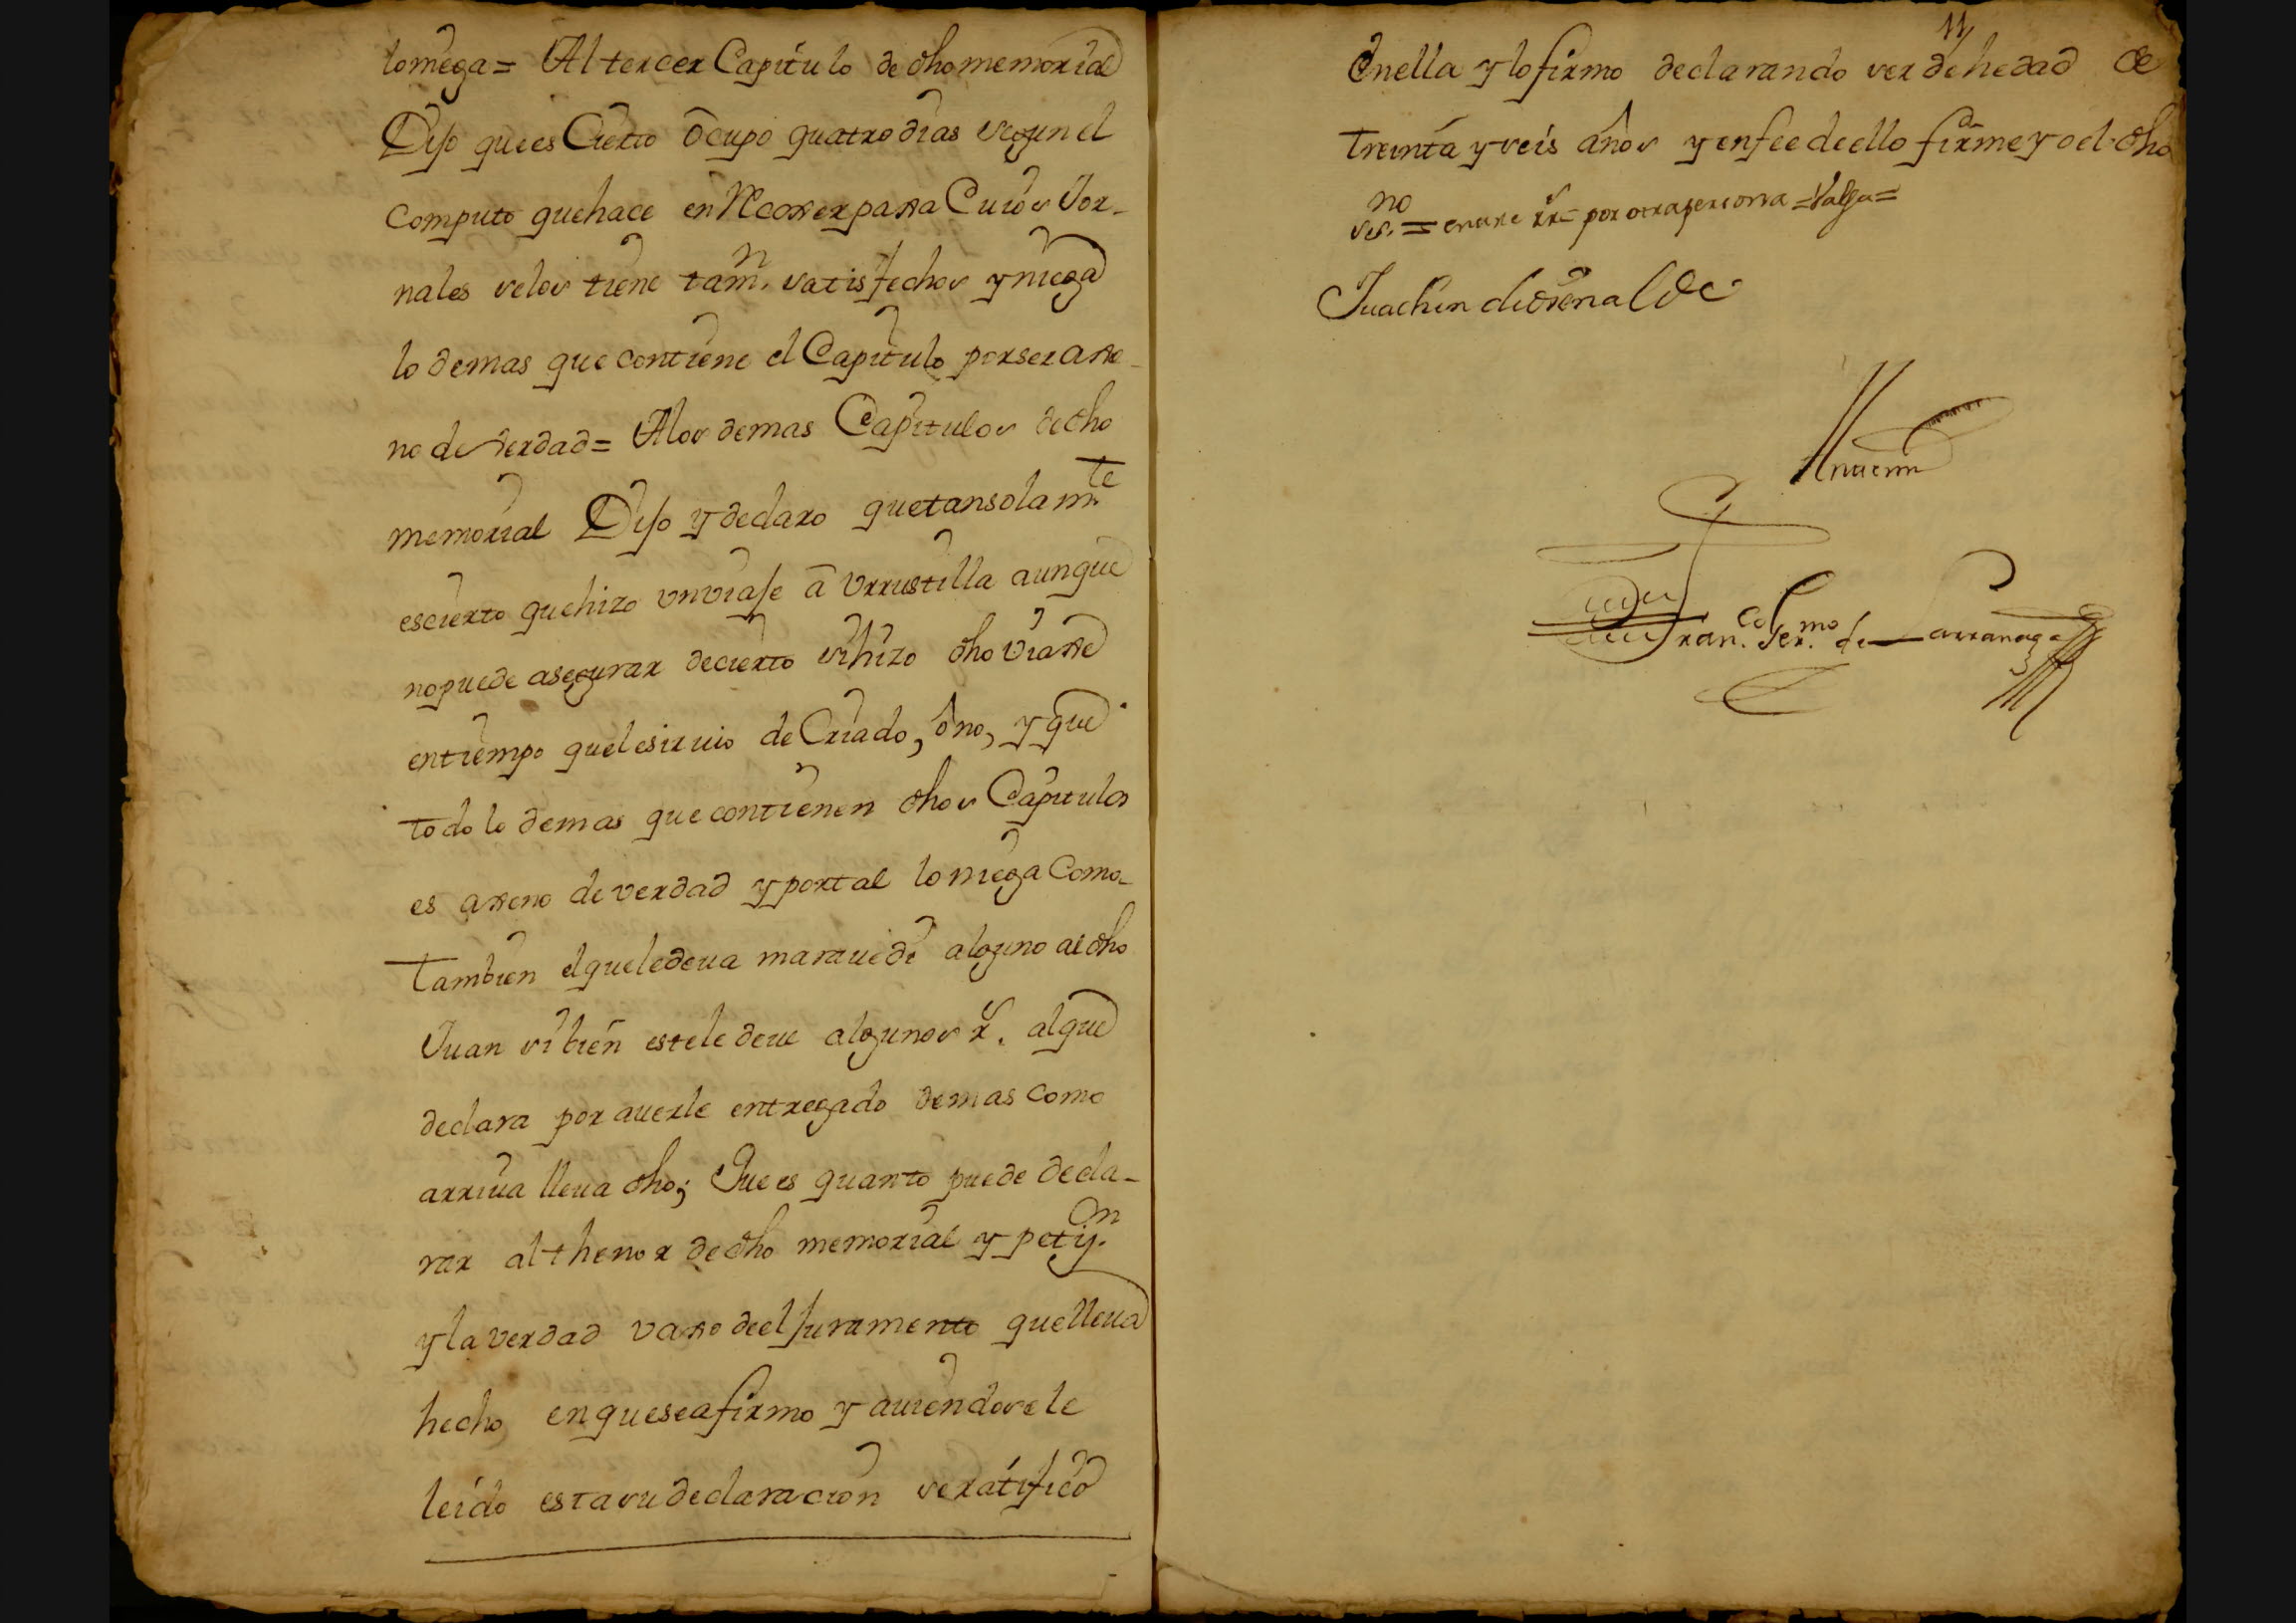 lo niega = Al tercer Capitulo de dho memorial
Dijo que es Cierto ocupo quatro dias segun el
computo que hace en Recoxer paxa Cuios Jor-
nales se los tiene tamn. satisfechos y niega
lo demas que contiene el Capitulo por ser axe-
no de verdad = A los demas Capitulos de dho
memorial Dijo y declaro que tan solamte
es cierto que hizo un viaje a Urrustilla aunque
no puede asegurar de cierto si hizo dho viaxe
en tiempo que le siruio de Criado, o no, y que
todo lo demas que contienen dhos Capitulos
es axeno de verdad y por tal lo niega Como
tambien el que le deua marauedi alguno al dho
Juan si bien este le deue algunos rs. al que
declara por auerle entregado demas como
arriua lleua dho; Que es quanto puede decla-
rar al thenor de dho memorial y petiçon
y la verdad vaxo de el juramento que lleua
hecho en que se afirmo y auiendosele
leido esta su declaracion se ratifico
11
en ella y lo firmo declarando ser de hedad de
treinta y seis años y en fee de ello firme yo el dho
no = entre rs = por otra persona = Valga =
Juachin de
Ante mi
Franco Germo de Larranaga